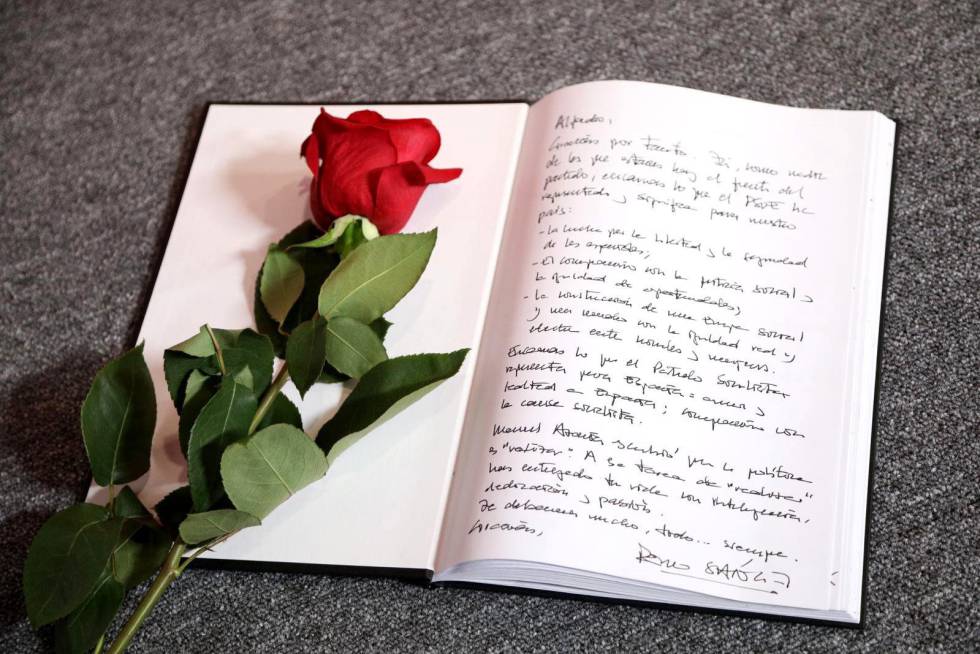 Alfredo,
Gracias por tanto. Tú, como nadie
de los que estamos hoy al frente del
partido, encarnas lo que el PSOE ha
representado y significa para nuestro
país:
- La lucha por la libertad y la seguridad
de los españoles;
- El compromiso con la justicia social y
la igualdad de oportunidades;
- La construcción de una Europa social
y una con la igualdad real y
efectiva entre hombres y mujeres.
Encarnas lo que el Partido Socialista
representa para España: amor y
lealtad a España; compromiso con
la causa socialista.
Manuel Azaña escribió que la política
es "realizar". A esa tarea de "realizar"
has entregado tu vida con inteligencia,
dedicación y pasión.
Te debemos mucho, todo... siempre.
Gracias,
Pedro SÁNCHEZ